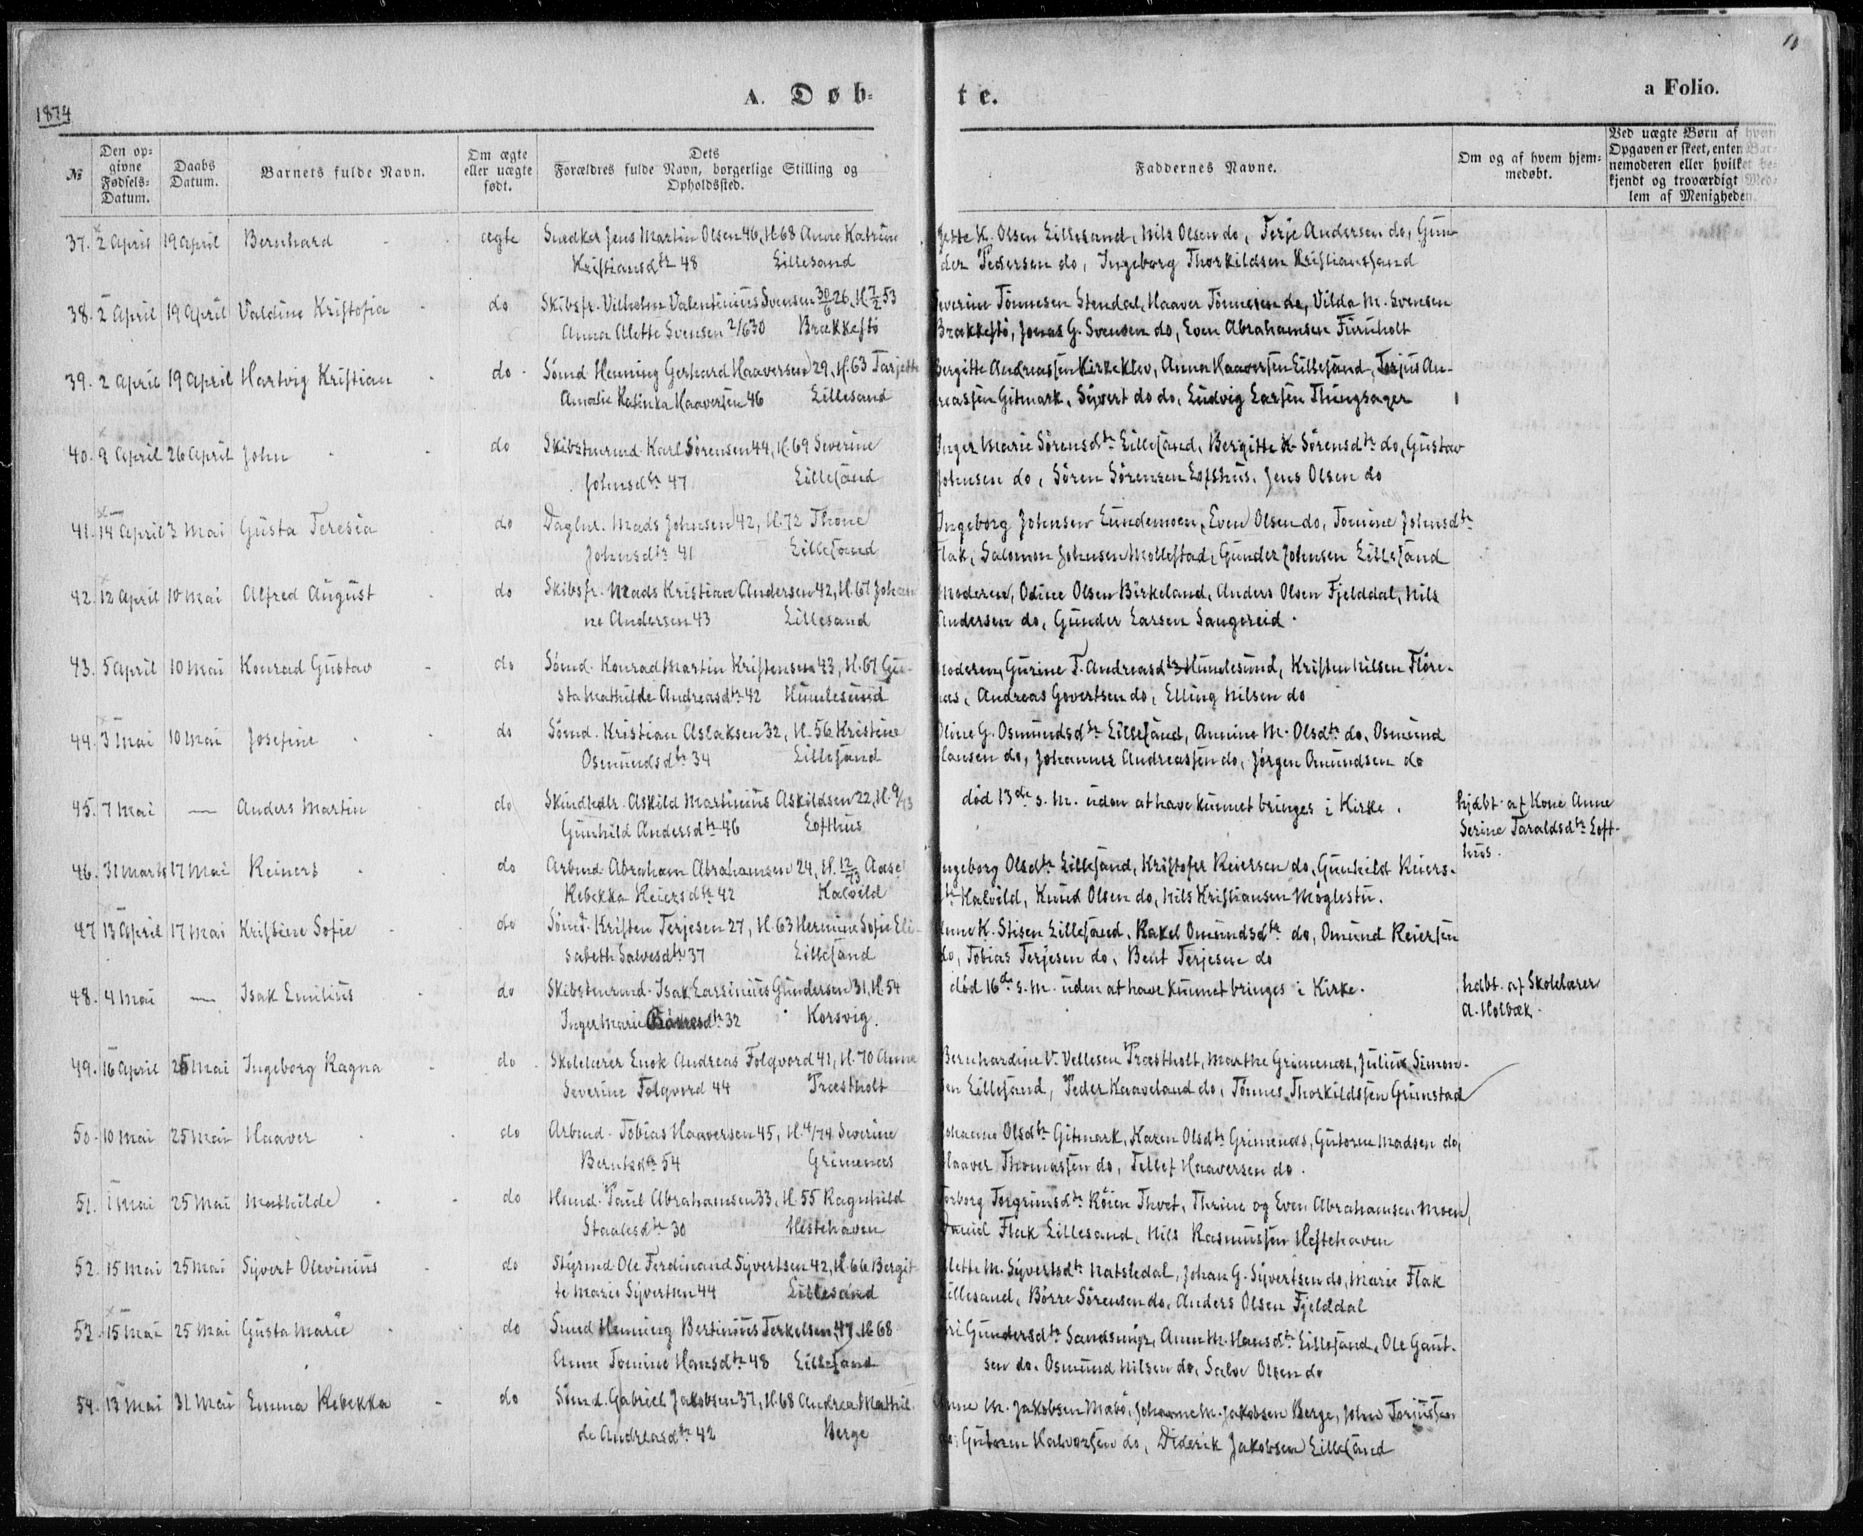 1874
A. Døb-
te.
a Folio.
№
Den op-
givne
Fødsels-
Datum.
Daabs
Datum.
Barnets fulde Navn.
Om ægte
eller uægte
født.
Dets
Forældres fulde Navn, borgerlige Stilling og
Opholdssted.
Faddernes Navne.
Om og af hvem hjem-
medøbt.
Ved uægte Børn af hvem
Opgaven er skeet, enten Bar-
nemoderen eller hvilket be-
kjendt og troværdigt Med-
lem af Menigheden.
37. 2 April 19 April Bernhard ægte Snedker Jens Martin Olsen 46, H. 68 Anne Katrine
Kristiansdtr 48 Lillesand
K. Olsen Lillesand, Nils Olsen do, Terje Andersen do, Gun-
der Pedersen do, Ingeborg Thorkildsen Kristianssand
38. 2 April 19 April Valdine Kristofia do Skibsfr. Vilhelm Valentinius Svensen 30/6 26, H. 7/2 53
Anna Alette Svensen 2/6 30 Brækkestø
Severine Tønnesen Stendal, Haaver Tønnesen do, Vilda M. Svensen
Brækkestø, Jonas G. Svensen do, Even Abrahamsen Furuholt
39. 2 April 19 April Hartvig Kristian do Sømd Henning Gerhard Haaversen 29, H. 63 Tarjette
Amalie Katinka Haaversen 46 Lillesand
Bergitte Andreassen Kirkeklev, Anna Haaversen Lillesand, Torjus An-
reassen Gitmark, Syvert do do, Ludvig Larsen Thingsager
40. 9 April 26 April John do Skibstmrmd Karl Sørensen 44, H. 69 Severine
Johnsdtr 47 Lillesand
Inger Marie Sørensdtr Lillesand, Bergitte K Sørensdtr do, Gustav
Johnsen do, Søren Sørensen Lofthus, Jens Olsen do
41. 14 April 3 Mai Gusta Teresia do Daglnr. Mads Johnsen 42, H. 72 Thone
Johnsdtr 41 Lillesand
Ingeborg Johnsen Lundemoen, Even Olsen do, Tomine Johnsdtr
Flak, Salomon Johnsen Møllestad, Gunder Johnsen Lillesand
42. 12 April 10 Mai Alfred August do Skibsfr. Mads Kristian Andersen 42, H. 67 Johan
ne Andersen 43 Lillesand
Moderen, Odine Olsen Birkeland, Anders Olsen Fjelddal, Nils
Andersen do, Gunder Larsen Sangereid.
43. 5 April 10 Mai Konrad Gustav do Sømd. Konrad Martin Kristensen 43, H. 67 Gu-
sta Mathilde Andreasdtr 42 Humlesund
Moderen, Gurine T. Andreasdtr Humlesund, Kristen Nilsen Flöre-
næs, Andreas Govertsen do, Elling Nilsen do
44. 3 Mai 10 Mai Josefine do Sømd. Kristian Aslaksen 32, H. 56 Kristine
Osmundsdtr 34 Lillesand
Oline G. Osmundsdtr Lillesand, Annine M. Olsdtr do, Osmund
Hansen do, Johannes Andreassen do, Jørgen Omundsen do
45. 7 Mai — Anders Martin do Skindhdlr. Askild Martinius Askildsen 22, H. 9/73
Gunhild Andersdtr 46 Lofthus
død 13de s. M. uden at have kunnet bringes i Kirke.
hjdbt. af Kone Anne
Serine Taraldsdtr Loft-
hus.
46. 31 Marts 17 Mai Reinert do Arbmd. Abraham Abrahamsen 24, H. 12/73 Aase
Rebekka Reiersdtr 42 Kalvild
Ingeborg Olsdtr Lillesand, Kristofer Reiersen do, Gunhild Reiers-
dtr Kalvild, Knud Olsen do, Nils Kristiansen Møglestu.
47 13 April 17 Mai Kristine Sofie do Sømd. Kristen Terjesen 27, H. 63 Hermine Sofie Eli-
sabeth Salvesdtr 37 Lillesand
Anne K. Stisen Lillesand, Rakel Omundsdtr do, Omund Reiersen
do, Tobias Terjesen do, Bent Terjesen do
48. 4 Mai — Isak Emilius do Skibstmrmd. Isak Larsinius Gundersen 31, H. 54
Inger Marie 32 Korsvig.
død 16de s. M. uden at have kunnet bringes i Kirke.
hdbt. af Skolelærer
A. Holbæk.
49. 16 April 25 Mai Ingeborg Ragna do Skolelærer Enok Andreas Folqvord 41, H. 70 Anne
Severine Folqvord 44 Præstholt
Bernhardine V. Vellesen Præstholt, Marthe Grimenæs, Julius Simon-
sen Lillesand, Peder Kaaveland do, Tønnes Thorkildssen Grimstad
50. 10 Mai 25 Mai Haaver do Arbmd. Tobias Haaversen 45, H. 4/74 Severine
Berntsdtr 54 Grimenæs
Johanne Olsdtr Gitmark, Karen Olsdtr Grimenæs, Gutorm Madsen do,
Haaver Thomassen do, Tellef Haaversen do.
51. 1 Mai 25 Mai Mathilde do Hmd. Paul Abrahamsen 33, H. 55 Ragnhild
Staalesdtr 30 Hestehaven
Torborg Torgrimsdtr Röien Thvet, Thrine og Even Abrahamsen Moen,
Daniel Flak Lillesand, Nils Rasmussen Hestehaven
52. 15 Mai 25 Mai Syvert Olevinius do Styrmd Ole Ferdinand Syvertsen 42, H. 66 Bergit-
te Marie Syvertsen 44 Lillesand
Alette M. Syvertsdtr Natsledal, Johan G. Syvertsen do, Marie Flak
Lillesand, Börre Sørensen do, Anders Olsen Fjelddal
53. 15 Mai 25 Mai Gusta Marie do Smed Henning Bertinius Terkelsen 47, H. 68
Anne Tomine Hansdtr 48 Lillesand
Gundersdtr Sandsmyr, Anne M. Hansdtr Lillesand, Ole Gaut-
sen do, Osmund Nilsen do, Salve Olsen do
54. 13 Mai 31 Mai Emma Rebekka do Sömd. Gabriel Jakobsen 37, H. 68 Andrea Mathil-
de Andreasdtr 42 Berge
Anne M. Jakobsen Mabö, Johanne M. Jakobsen Berge, John Torjussen
do, Gutorm Halvorsen do, Diderik Jakobsen Lillesand